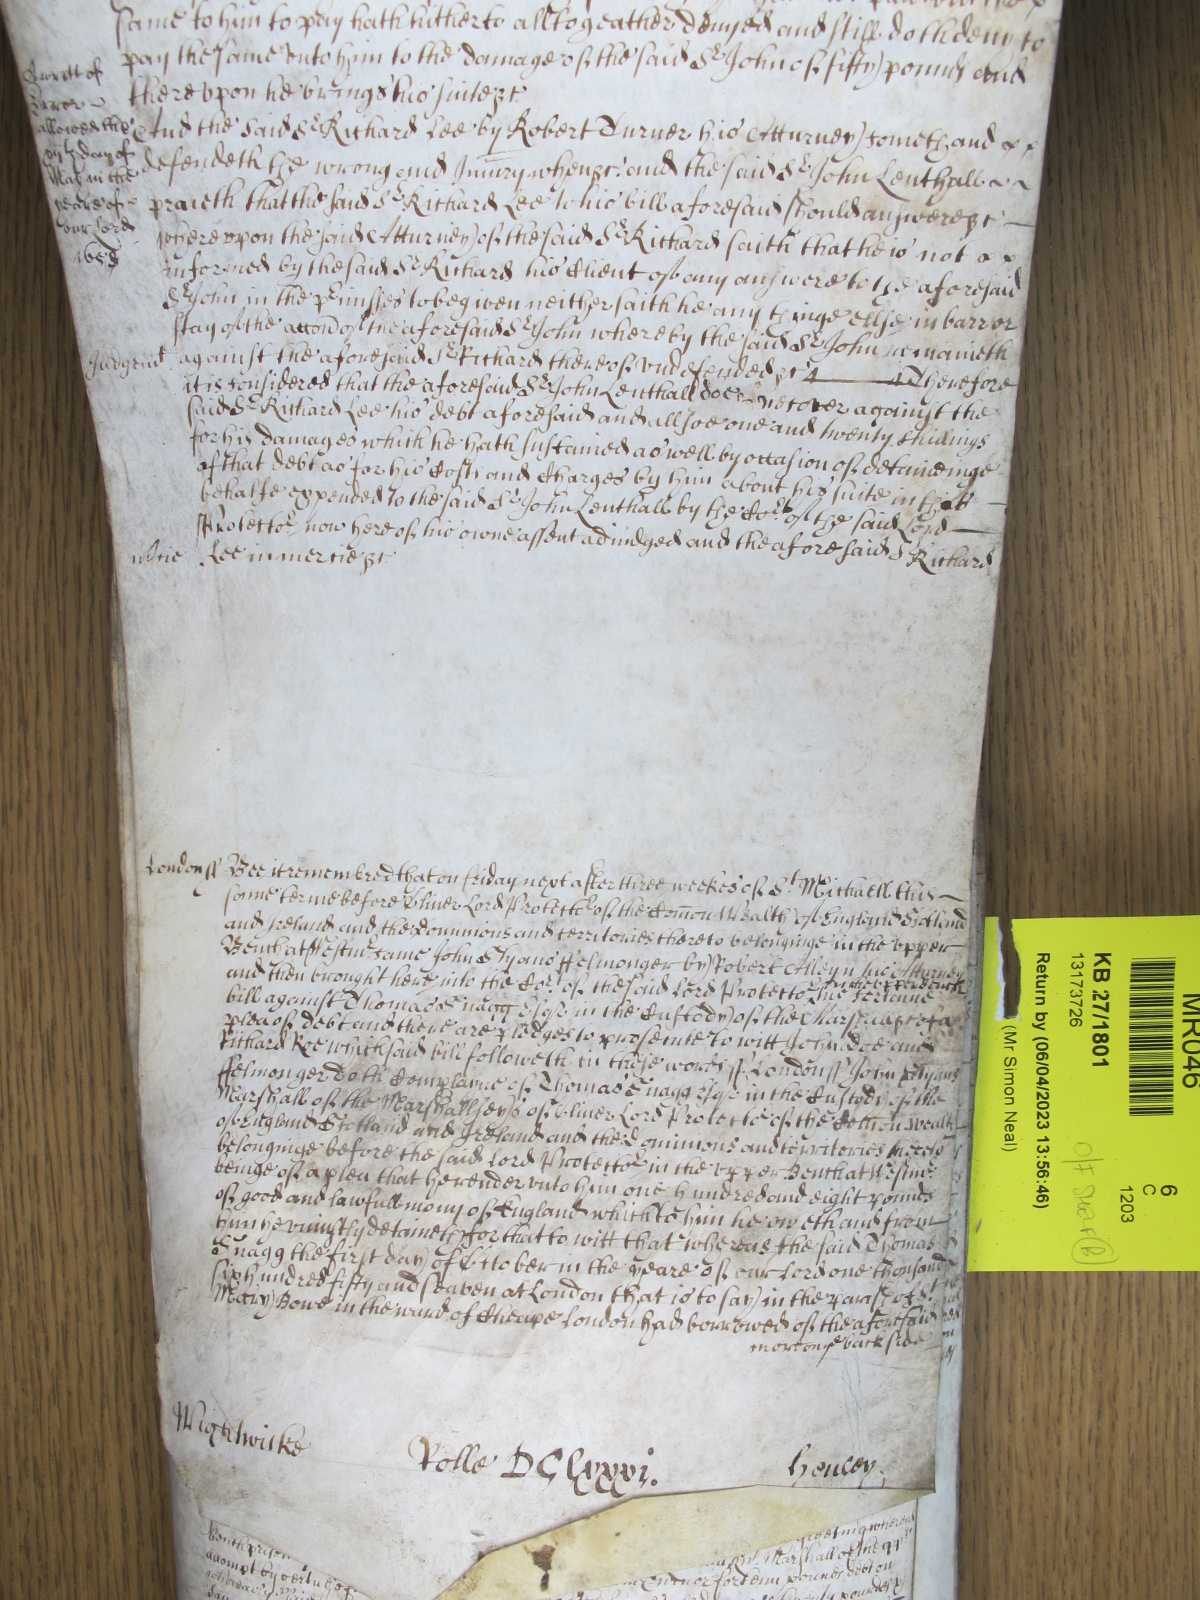 same to him to pay hath hitherto alltogeather denyed and still doth deny to
pay the same unto him to the damage of the said Sr John of fifty pounds and
thereupon he brings his suite &c
A writt of
Error
allowed the
day of
May in the
yeare of
our Lord
165
And the said Sr Richard Lee by Robert Turner his Atturney cometh and
defendeth the wrong and Injury when &c. and the said Sr John Lenthall
praieth that the said Sr Richard Lee to his bill aforesaid should answere &c
whereupon the said Atturney of the said Sr Richard saith that he is not
informed by the said Sr Richard his Client of any answere to the aforesaid
Sr John in the premisses to be given neither saith he any thinge ellse in barr or
stay of the accon of the aforesaid Sr John whereby the said Sr John remaineth
Judgent
against the aforesaid Sr Richard thereof undefended &c Therefore
it is considered that the aforesaid Sr John Lenthall doe recover against the
said Sr Richard Lee his debt aforesaid and allsoe one and twenty shillings
for his damages which he hath sustained as well by occasion of detaineinge
of that debt as for his Costs and Charges by him about his suite in that
behalfe expended to the said Sr John Lenthall by the Cort of the said Lord
Protector now here of his owne assent adiudged and the aforesaid Sr Richard
mcie Lee in mercie &c
London ss Bee it remembred that on friday next after three weekes of St Michaell this
same terme before Oliver Lord Protector of the Comon Wealth of England Scotland
and Ireland and the Dominions and territories thereto belonginge in the upper
Bench at Westmr came John Felmonger by Robert Alleyn his Atturney
and then brought here into the Cort of the said Lord Protector his certaine
bill against Thomas Snagg Esqr in the Custody of the Marshall &c of a
plea of debt and there are pledges to prosecute to witt John Doe and
Richard Roe which said bill followeth in these words ss London ss John
ffelmonger doth Complaine of Thomas Snagg Esqr in the Custody of the
Marshall of the Marshallsey of Oliver Lord Protector of the Comon wealth
of England Scotland and Ireland and the Dominions and territories thereto
belonginge before the said Lord Protector in the upper Bench at Westmr
beinge of a plea that he render unto him one hundred and eight pounds
of good and lawfull mony of England which to him he oweth and from
him he uniustly detaineth for that to witt that whereas the said Thomas
Snagg the first day of October in the yeare of our Lord one thousand
six hundred fifty and seaven at London that is to say in the parish of St
Mary Bowe in the ward of Cheape London had borrowed of the aforesaid
more on ye back side
Mightwicke
Rolle DClxxxi.
Henley
MR046
6
C
1203
KB 27/1801
13173726
Return by (06/04/2023 13:56:46)
(Mr Simon Neal)